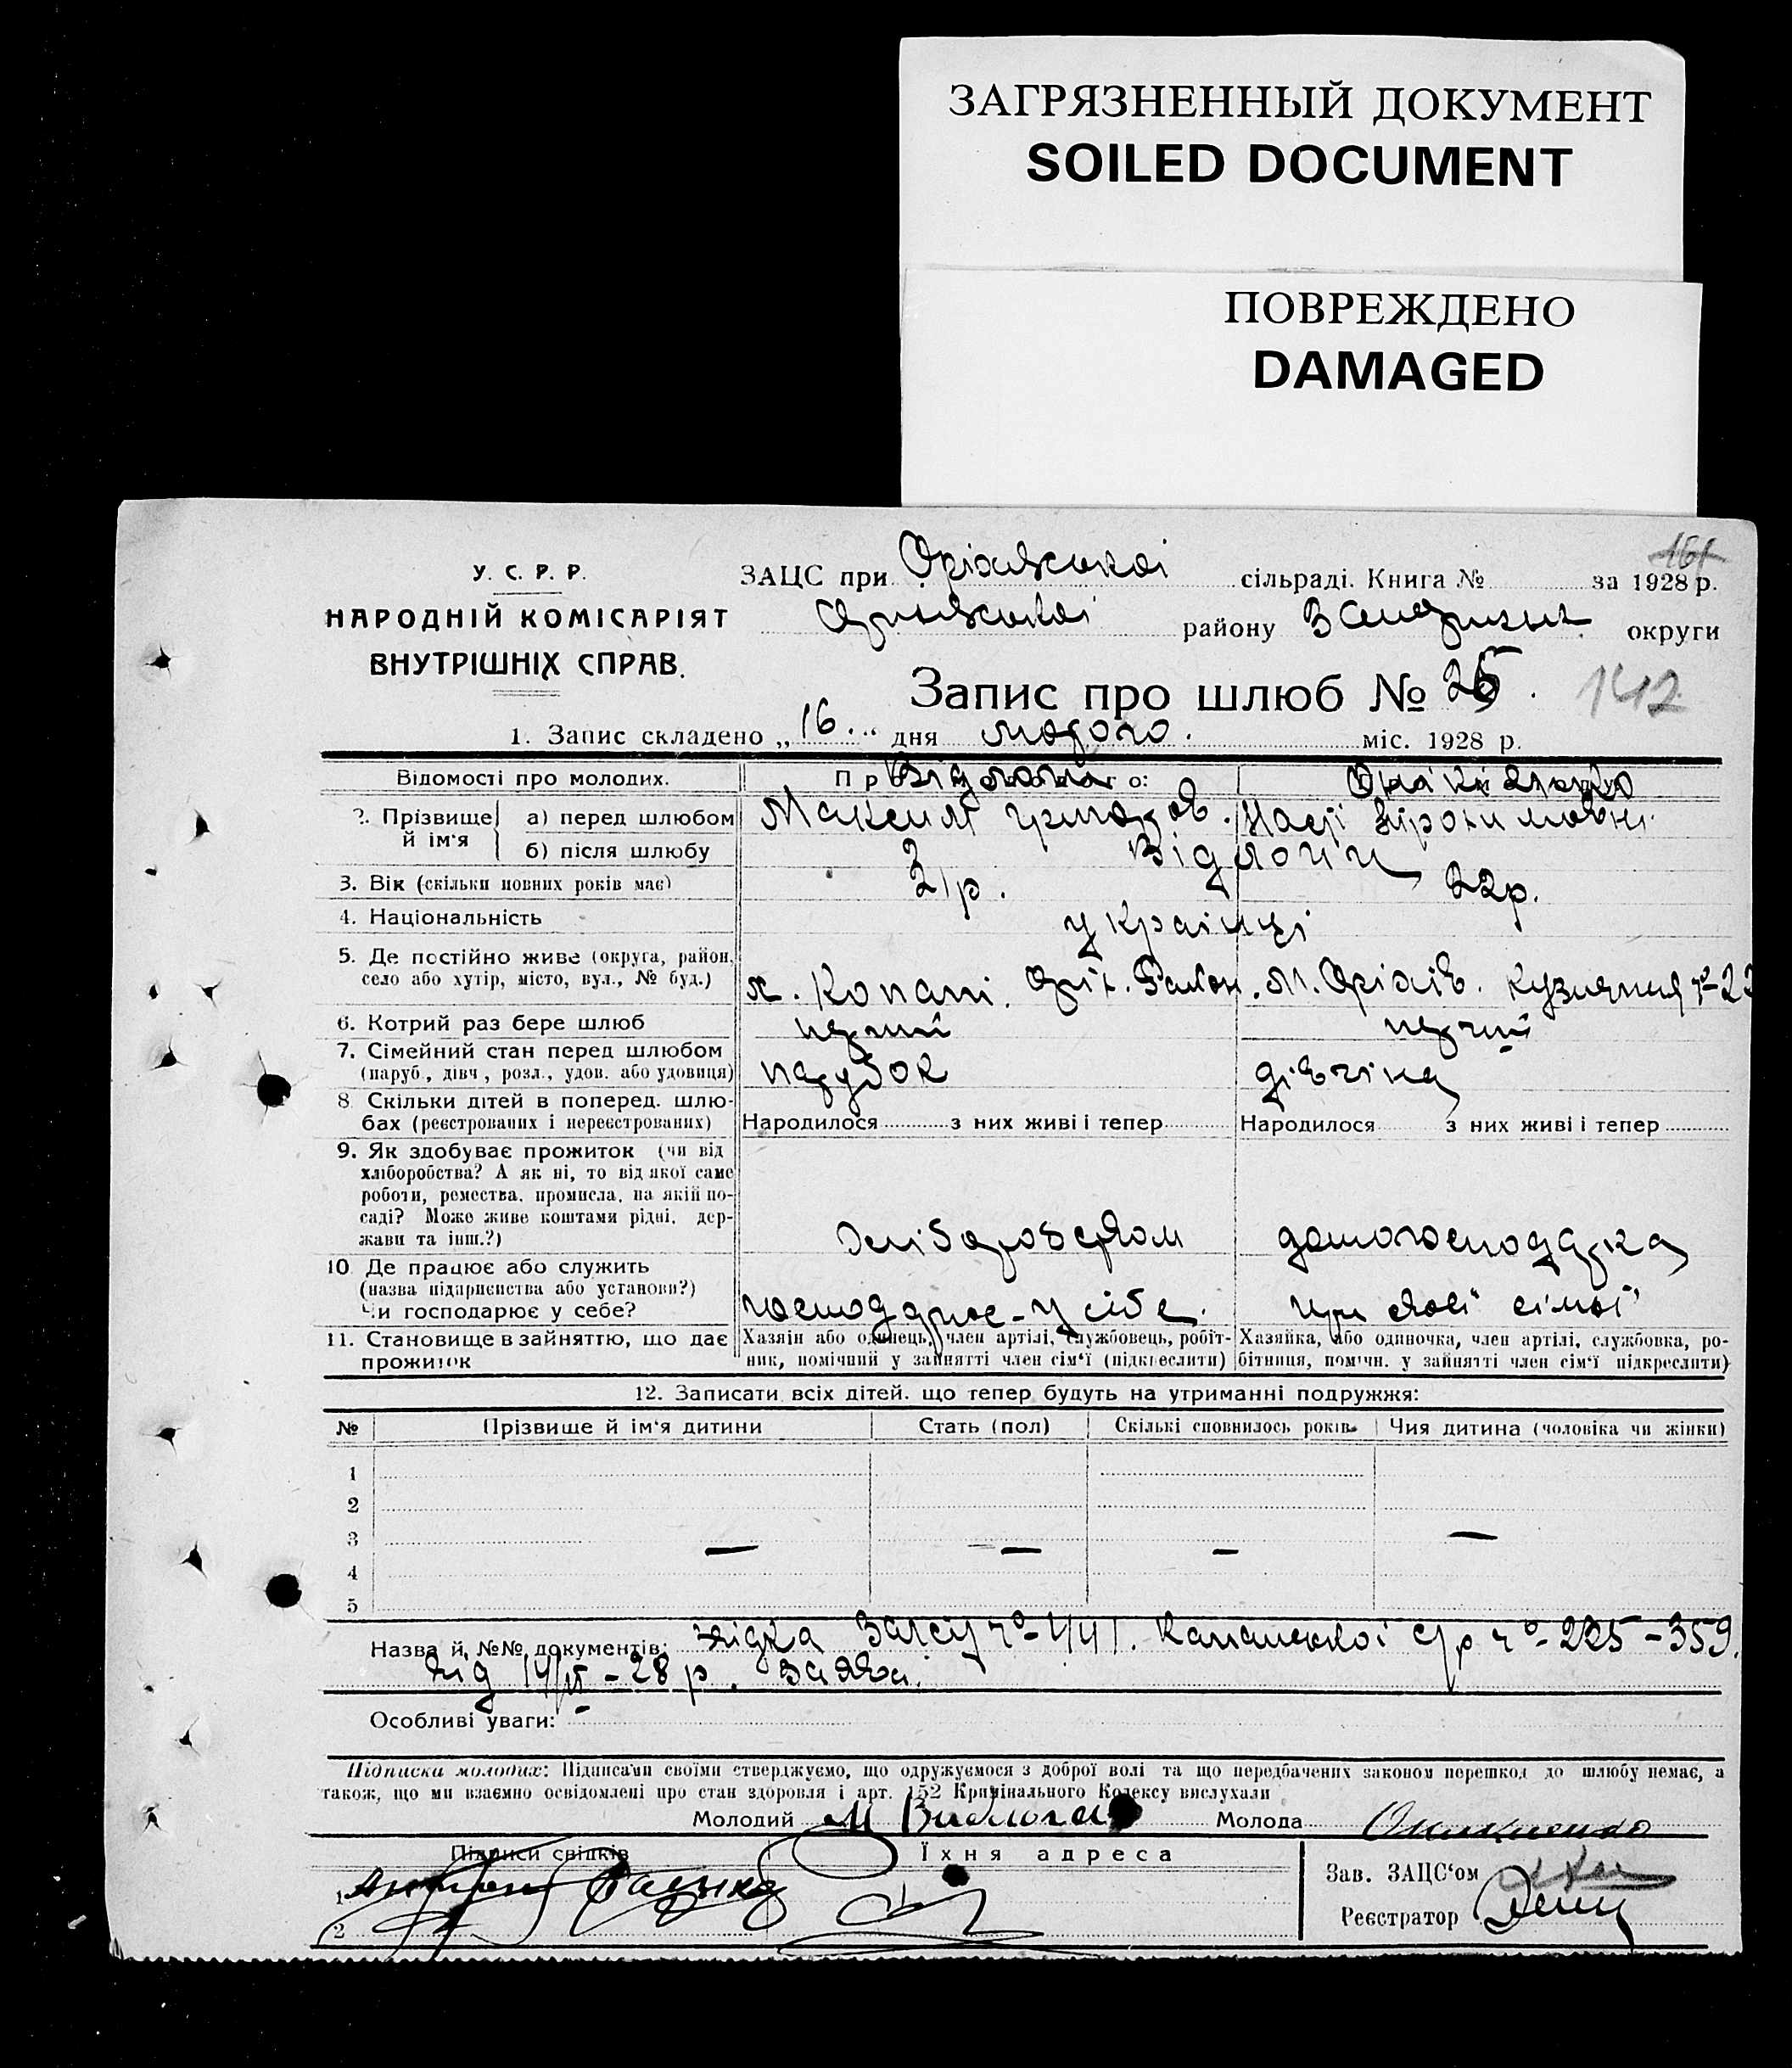 ЗАГРЯЗНЕННЫЙ ДОКУМЕНТ
SOILED DOCUMENT
ПОВРЕЖДЕНО
DAMAGED
161
У. С. Р. Р.
НАРОДНІЙ КОМІСАРІЯТ
ВНУТРІШНІХ СПРАВ.
ЗАЦС при Оріхівській сільраді. Книга № за 1928 р.
району округи
Запис про шлюб № 25. 142
1. Запис складено „16.“ дня лютого. міс. 1928 р.
Відомості про молодих.
2. Прізвище й ім‘я
а) перед шлюбом
Максим Григоров.
б) після шлюбу
3. Вік (скільки повних років має) 21 р. 22 р.
4. Національність українці
5. Де постійно живе (округа, район, село або хутір, місто, вул., № буд.)
х. Копані. Оріх. Район. М. Оріхів.
6. Котрий раз бере шлюб перший перший
7. Сімейний стан перед шлюбом (паруб., дівч., розл., удов. або удовиця) парубок дівчіна
8. Скільки дітей в поперед. шлюбах (реєстрованих і нереєстрованих)
Народилося з них живі і тепер Народилося з них живі і тепер
9. Як здобуває прожиток (чи від хліборобства? А як ні, то від якої саме роботи, ремества, промисла, на якій посаді? Може живе коштами рідні, держави та інш.?)
хліборобством домогосподарка
10. Де працює або служить (назва підприємства або установи?) Чи господарює у себе?
господарює - у себе. при своїй сімьї
11. Становище в зайняттю, що дає прожиток
Хазяїн або одинець, член артілі, службовець, робітник, помічний у зайнятті член сім‘ї (підкреслити)
Хазяйка, або одиночка, член артілі, службовка, робітниця, помічн. у зайнятті член сім‘ї підкреслити)
12. Записати всіх дітей, що тепер будуть на утриманні подружжя:
№ Прізвище й ім‘я дитини Стать (пол) Скількі сповнилось років. Чия дитина (чоловіка чи жінки)
1
2
3
4
5
Назва й №№ документів: 225-359.
від 14/II-28 р. Заява.
Особливі уваги:
Підписка молодих: Підписами своїми стверджуємо, що одружуємося з доброї волі та що передбачених законом перешкод до шлюбу немає, а
також, що ми взаємно освідомлені про стан здоровля і арт. 152 Кримінального Кодексу вислухали
Молодий Молода
Підписи свідків Їхня адреса
1
2
Зав. ЗАЦС‘ом
Реєстратор